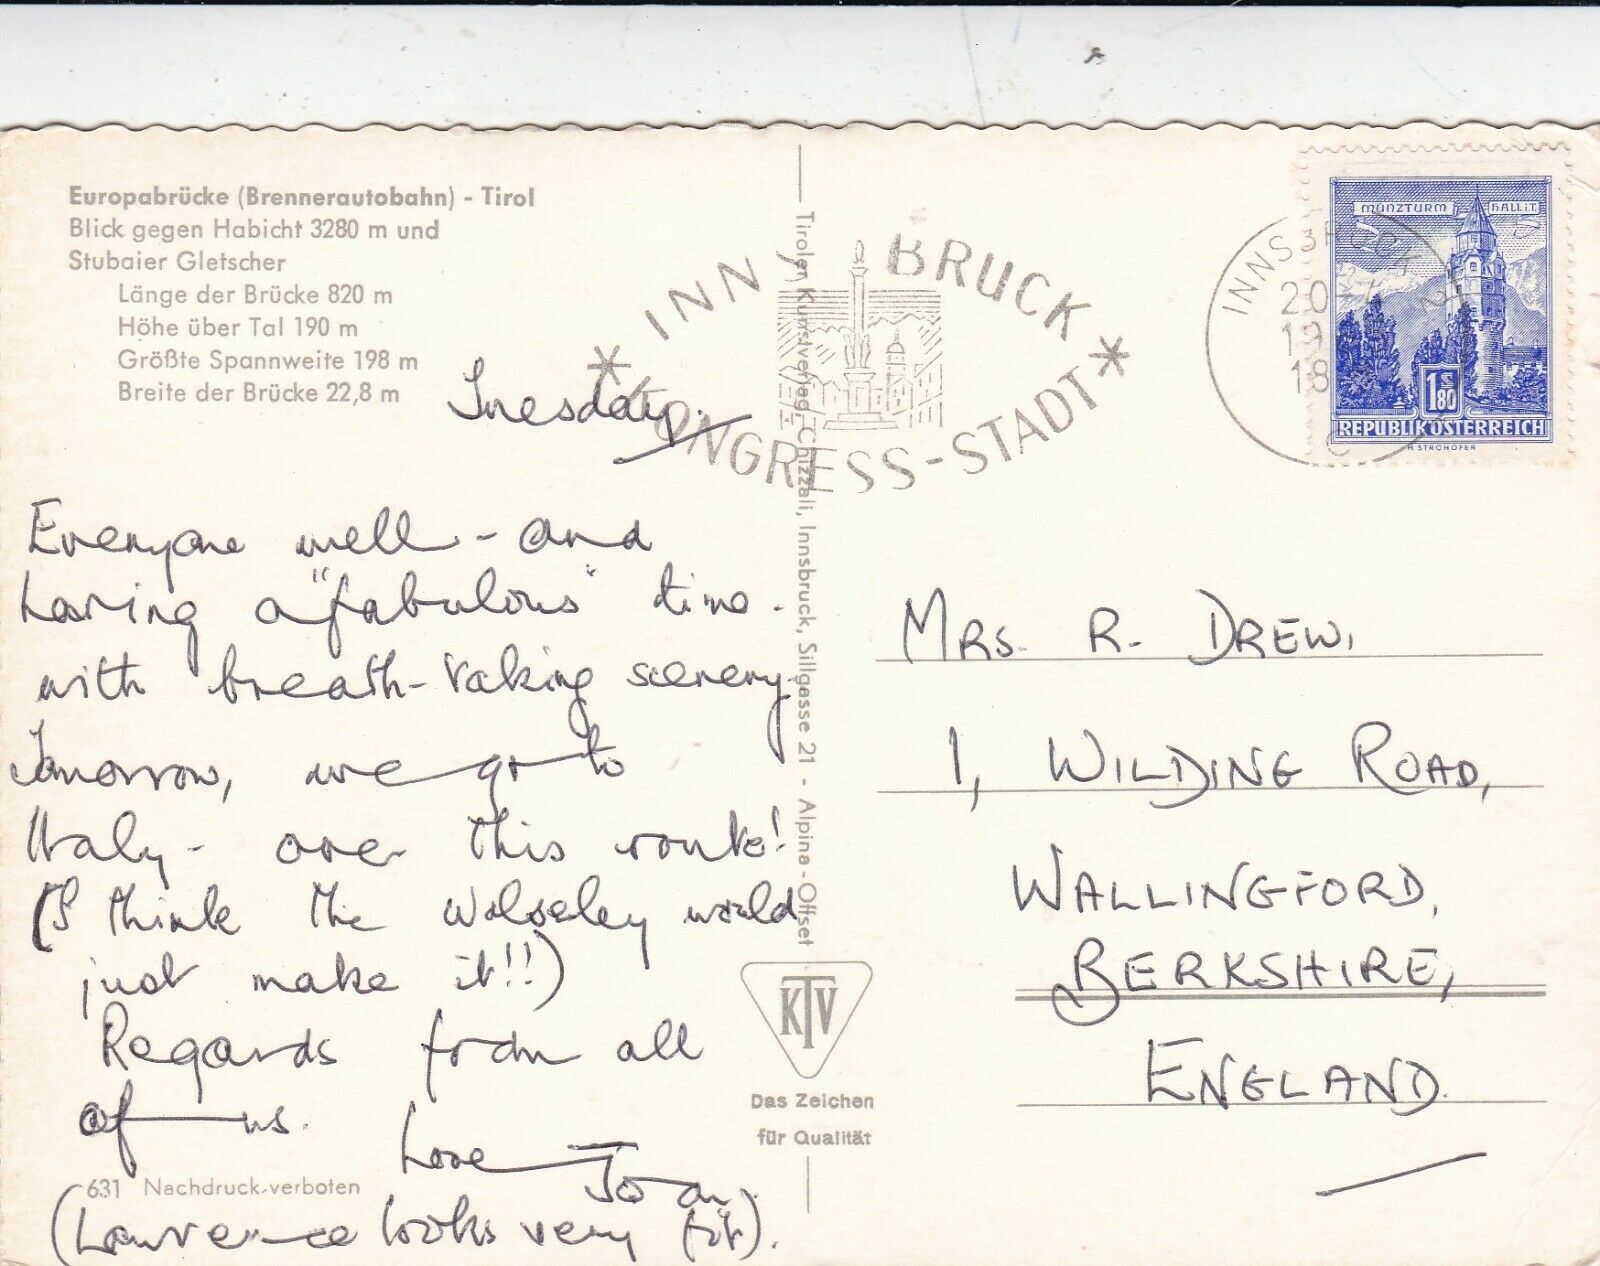 Europabrücke (Brennerautobahn) - Tirol
Blick gegen Habicht 3280 m und
Stubaier Gletscher
Länge der Brücke 820 m
Höhe über Tal 190 m
Größte Spannweite 198 m
Breite der Brücke 22,8 m
Tuesday.
Everyone well - and
having a "fabulous" time -
with breath-taking scenery.
Tomorrow, we go to
Italy - over this route!
(I think the Wolseley would
just make it!!)
Regards from all
of us.
Love Joan.
(Lawrence looks very fit).
631 Nachdruck verboten
Tiroler Kunstverlag, Chizzali, Innsbruck, Sillgasse 21 - Alpina-Offset
KTV
Das Zeichen
für Qualität
INN BRUCK
KONGRESS-STADT
INNSBRUCK 2
20
19
18
MÜNZTURM HALL i.T.
1 S 80
REPUBLIK ÖSTERREICH
H. STROHOFER
MRS. R. DREW,
1, WILDING ROAD,
WALLINGFORD,
BERKSHIRE,
ENGLAND.